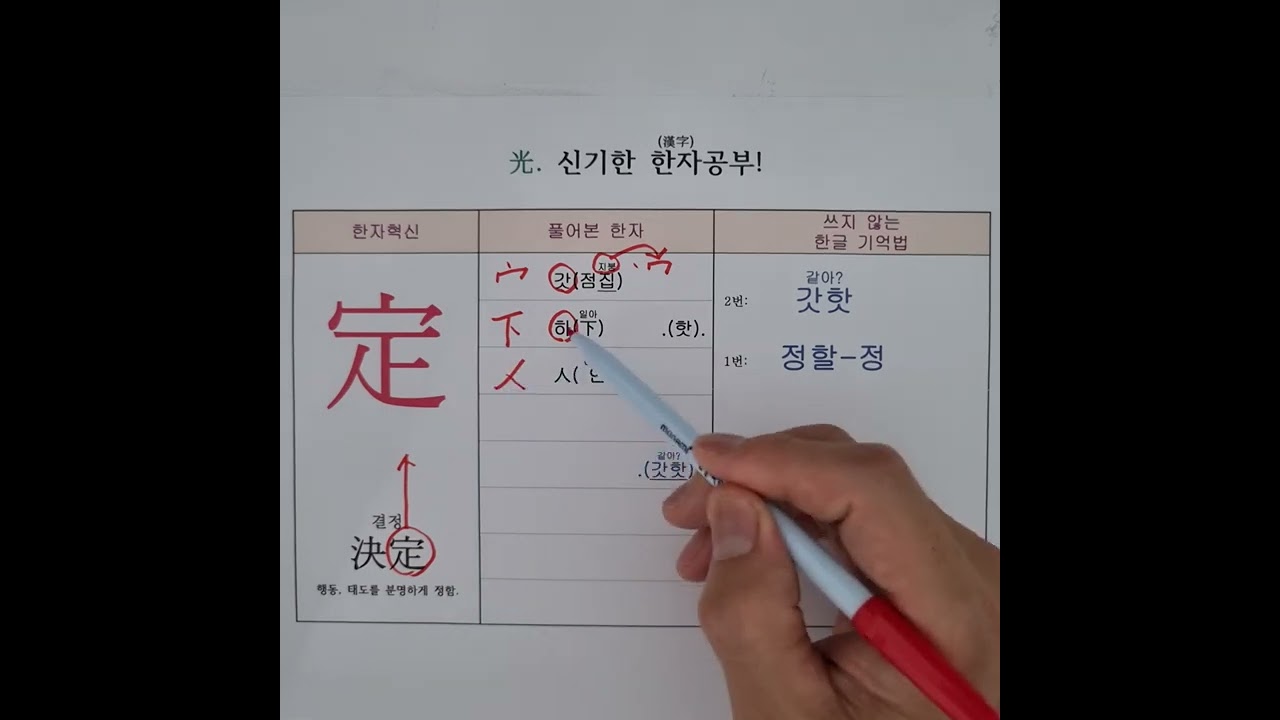 (漢字)
光. 신기한 한자공부!
한자혁신
풀어본 한자
쓰지 않는
한글 기억법
定
결정
決定
행동, 태도를 분명하게 정함.
宀 갓(점집) 지붕 宀
下 하(下) 일아 .(핫).
人(
같아?
.(갓핫)
같아?
2번: 갓핫
1번: 정할-정
monami